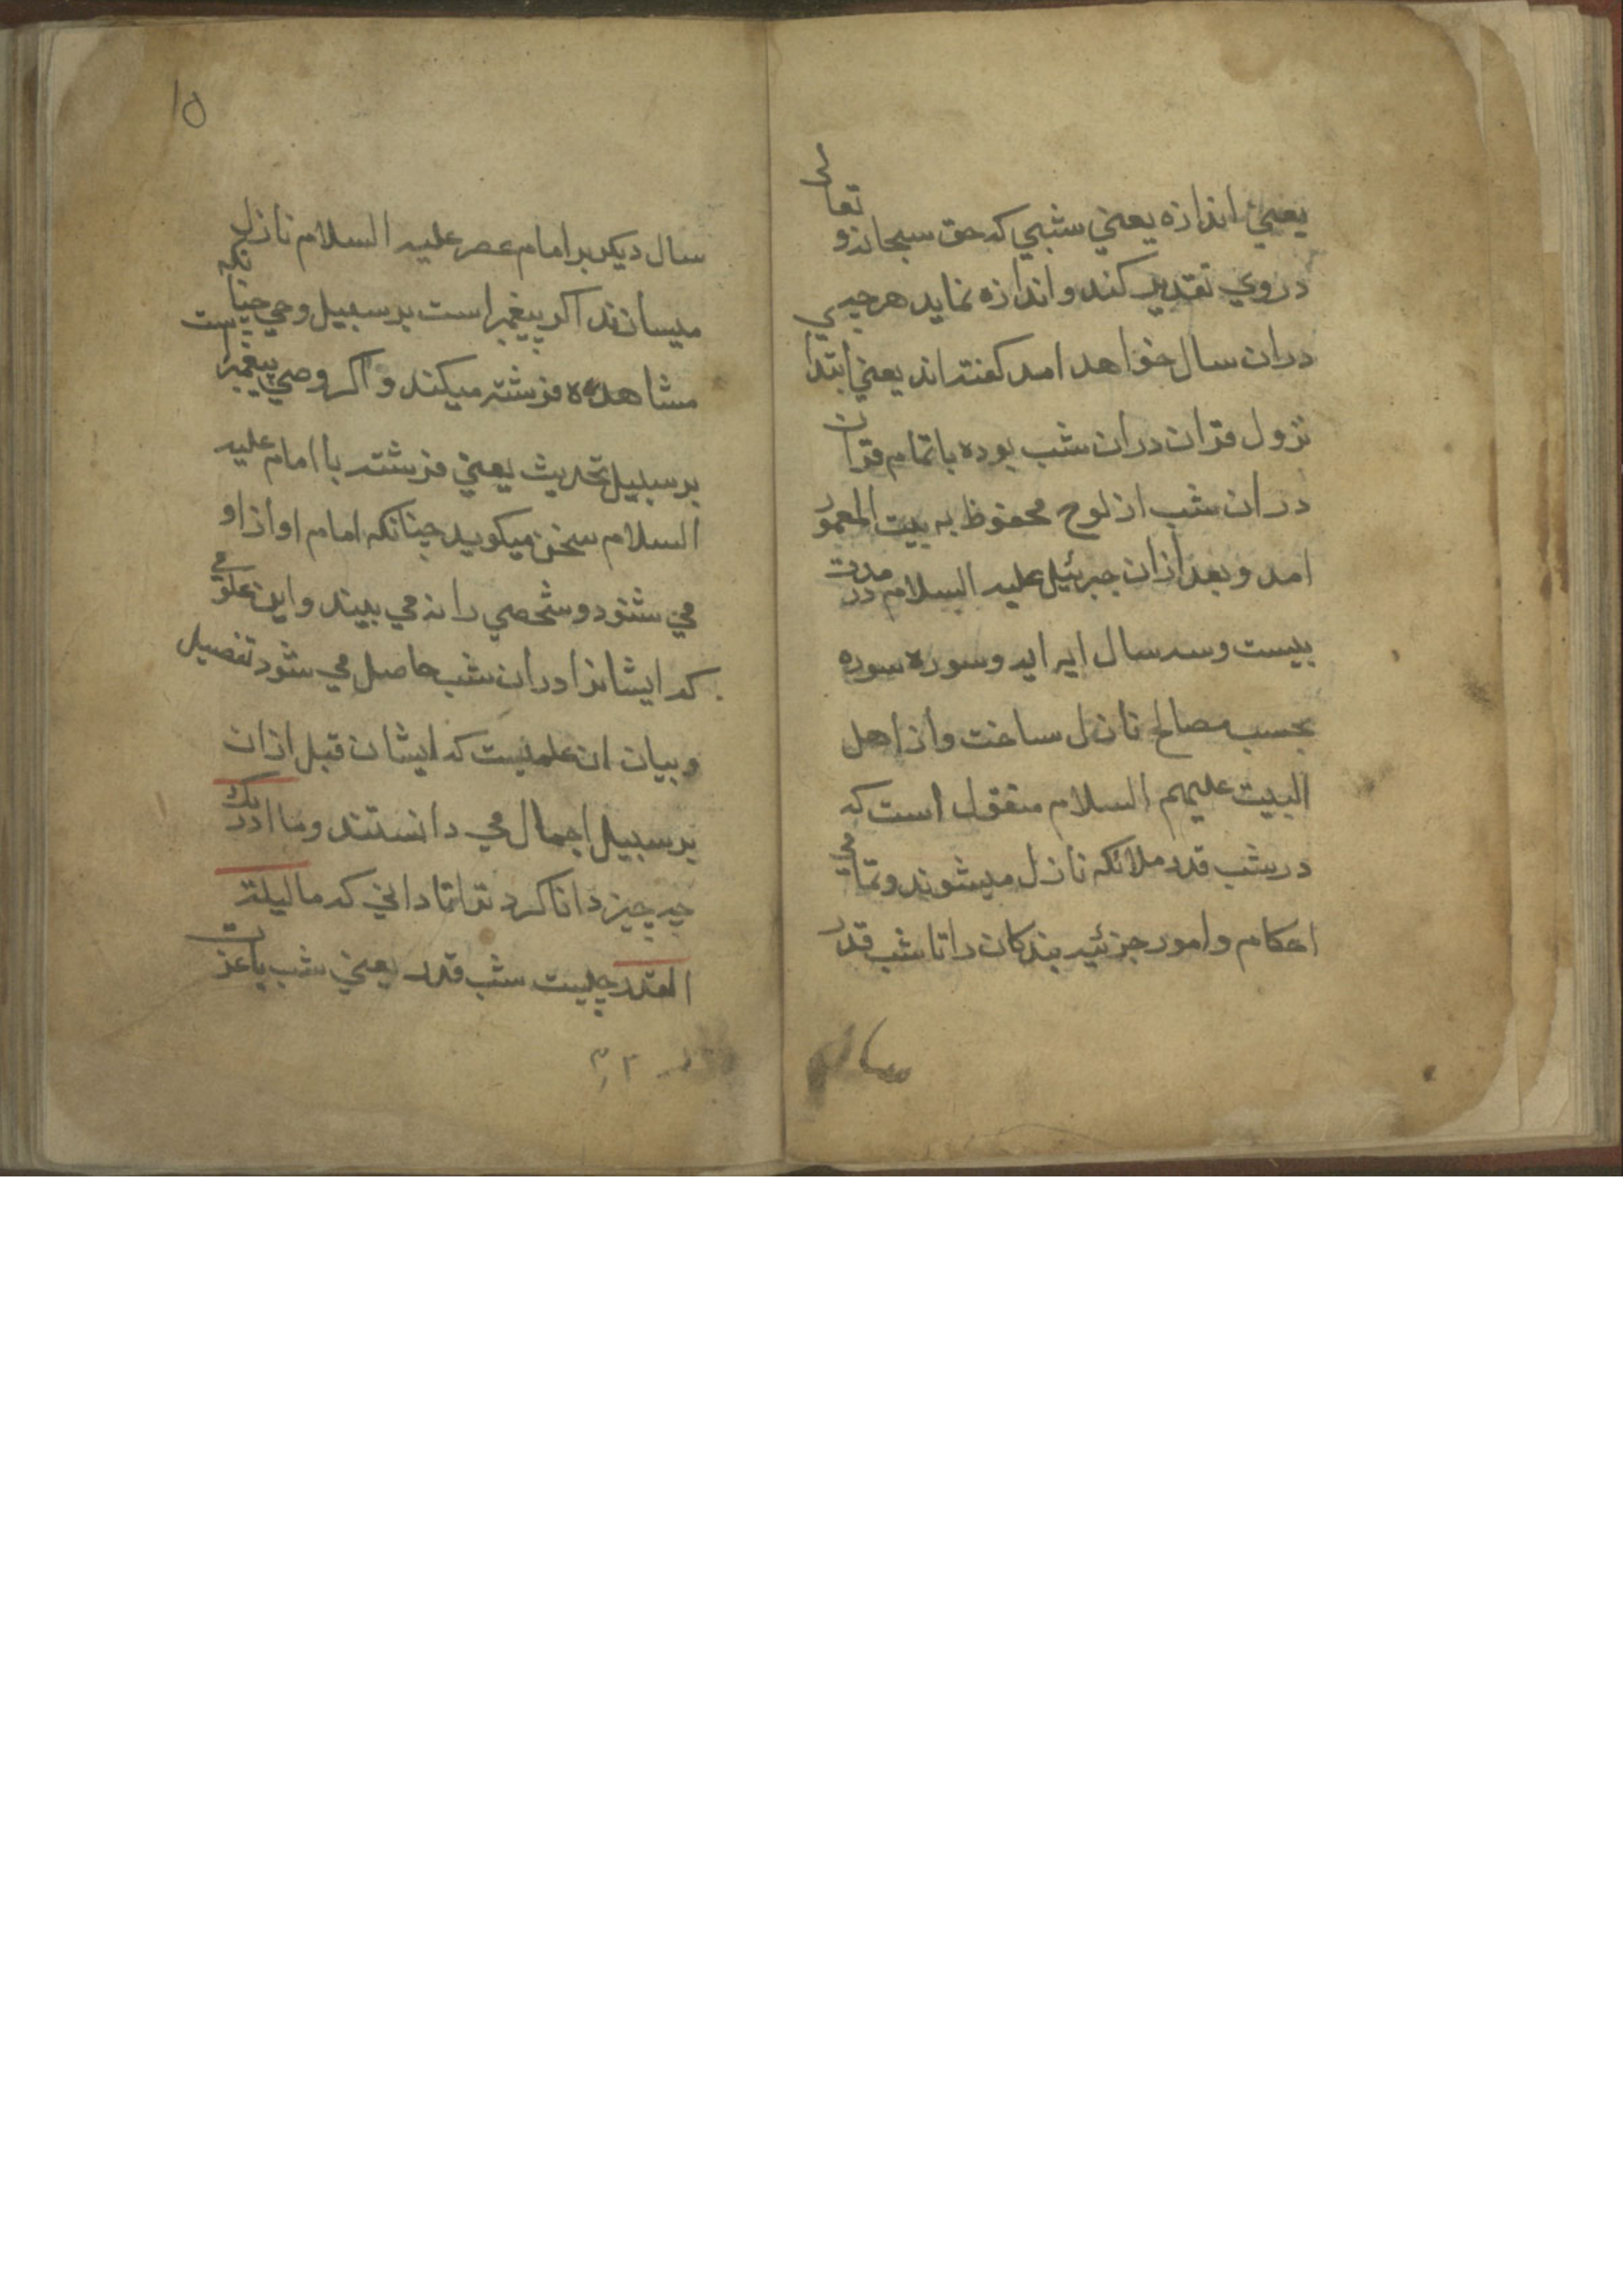 يعني اندازه يعني شبي كه حق سبحانه و تعالى
در وي تقدير كند و اندازه نمايد هرچيزي
دران سال خواهد امد كفته اند يعني ابتدا
نزول قران دران شب بوده با تمام قران
دران شب از لوح محفوظ به بيت المعمور
امد و بعد ازان جبرئيل عليه السلام در مدت
بيست و سه سال ايه ايه و سوره سوره
بحسب مصالح نازل ساخت و از اهل
البيت عليهم السلام منقول است كه
در شب قدر ملائكه نازل ميشوند و تمامي
احكام و امور جزئيه بندكان را تا شب قدر
سال
١٥
سال ديكر بر امام عصر عليه السلام نازل
ميسازند اكر پيغمبر است بر سبيل وحي چنانكه
مشاهده فرشته ميكند و اكر وصي پيغمبرست
بر سبيل تحديث يعني فرشته با امام عليه
السلام سخن ميكويد چنانكه امام اواز او
مي شنود و شخصي را نه مي بيند و اين علومي
كه ايشانرا دران شب حاصل مي شود تفصيل
و بيان ان علميست كه ايشان قبل ازان
بر سبيل اجمال مي دانستند وما ادريك
چه چيز دانا كرد ترا تا داني كه ما ليلة
القدر چيست شب قدر يعني شب باعزت